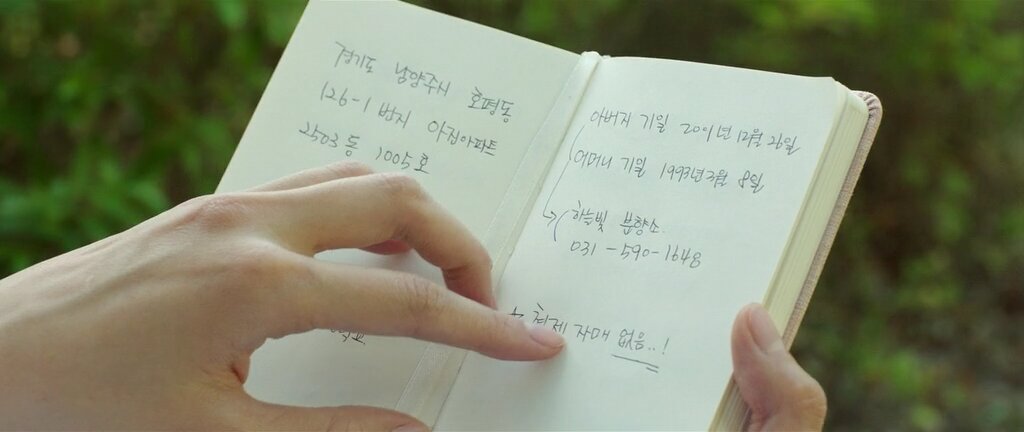 경기도 남양주시 호평동
126-1 번지 아진아파트
2503동 1005호
아버지 기일 2001년 12월 26일
어머니 기일 1993년 2월 8일
하늘빛 분향소.
031-590-1648
형제 자매 없음..!